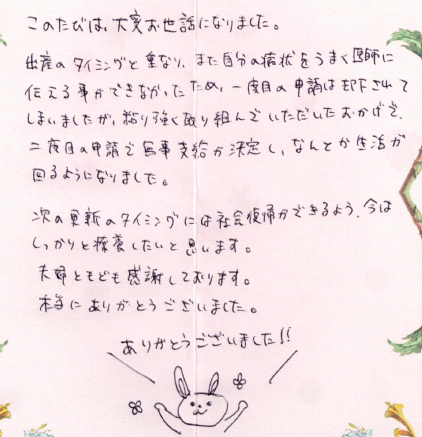 このたびは、大変お世話になりました。
出産のタイミングと重なり、また自分の病状をうまく医師に
伝える事ができなかったため、一度目の申請は却下されて
しまいましたが、粘り強く取り組んでいただいたおかげで、
二度目の申請で無事支給が決定し、なんとか生活が
回るようになりました。
次の更新のタイミングには社会復帰ができるよう、今は
しっかりと療養したいと思います。
夫婦ともども感謝しております。
本当にありがとうございました。
ありがとうございました!!